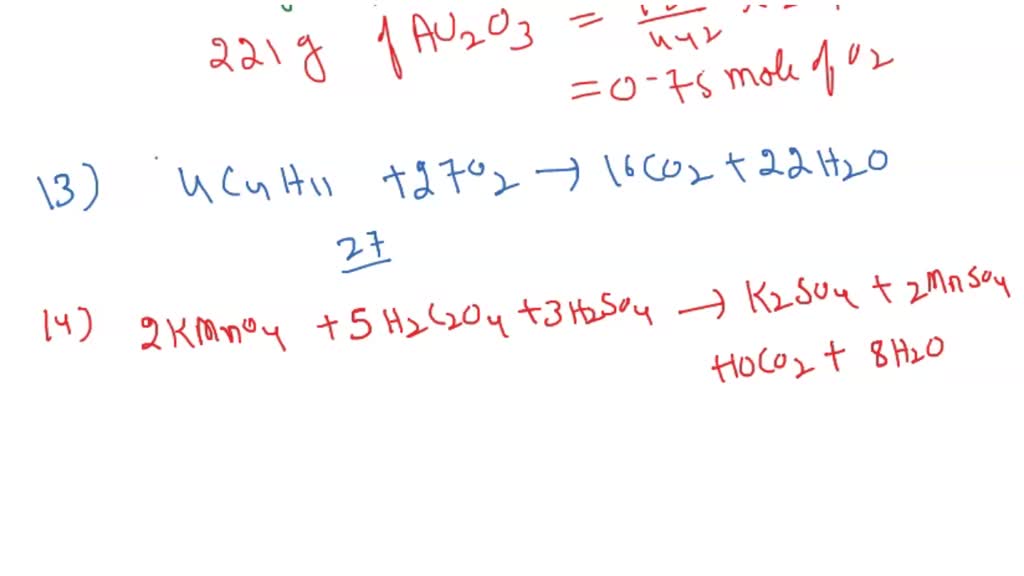 221 g of Au2O3 = /442
= 0-75 mole of O2
13) 4C4H11 + 27O2 → 16CO2 + 22H2O
27
14) 2KMnO4 + 5H2C2O4 + 3H2SO4 → K2SO4 + 2MnSO4
HOCO2 + 8H2O